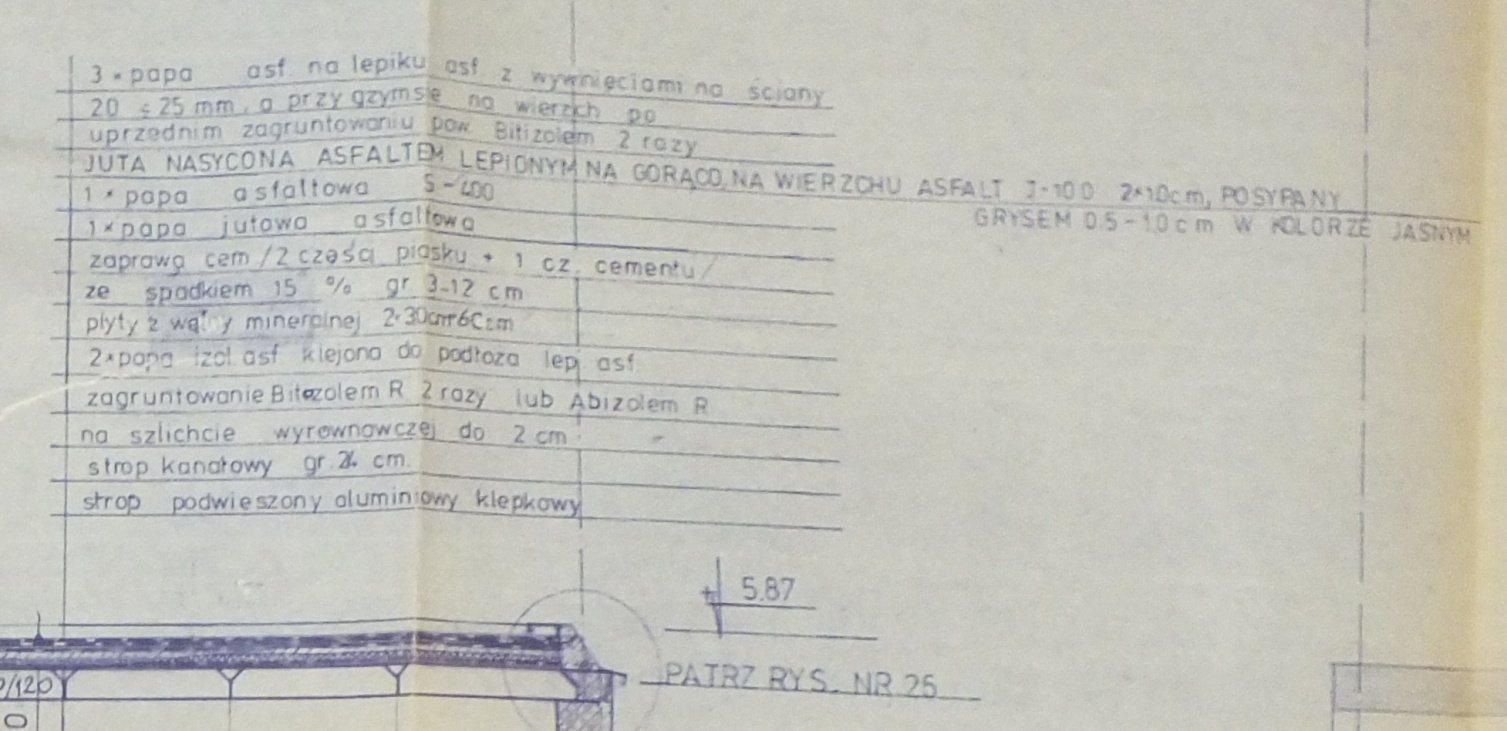 3 × papa asf. na lepiku asf z wywinięciami na ściany
20 ÷ 25 mm, a przy gzymsie na wierzch po
uprzednim zagruntowaniu pow. Bitizolem 2 razy
JUTA NASYCONA ASFALTEM LEPIONYM NA GORĄCO, NA WIERZCHU ASFALT J-100 2×1.0cm, POSYPANY
GRYSEM 0.5 - 1.0 cm W KOLORZE JASNYM
1 × papa asfaltowa S-400
1 × papa jutowa asfaltowa
zaprawa cem /2 części piasku + 1 cz. cementu/
ze spadkiem 15 % gr 3-12 cm
płyty z wełny mineralnej
2 × papa izol. asf klejona do podłoża lep. asf.
zagruntowanie Bitizolem R 2 razy lub Abizolem R
na szlichcie wyrównawczej do 2 cm
strop kanałowy gr. 24 cm.
strop podwieszony aluminiowy klepkowy
5.87
PATRZ RYS. NR 25
/120
0